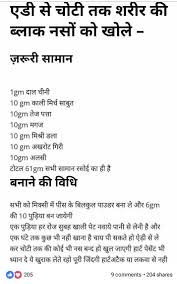 एडी से चोटी तक शरीर की
ब्लाक नसों को खोले –
ज़रूरी सामान
1gm दाल चीनी
10 gm काली मिर्च साबुत
10gm तेज पत्ता
10gm मगज
10gm मिश्री डला
10 gm अखरोट गिरी
10gm अलसी
टोटल 61gm सभी सामान रसोई का ही है
बनाने की विधि
सभी को मिक्सी में पीस के बिलकुल पाउडर बना ले और 6gm
की 10 पुड़िया बन जायेगी
एक पुड़िया हर रोज सुबह खाली पेट नवाये पानी से लेनी है और
एक घंटे तक कुछ भी नही खाना है चाय पी सकते हो ऐड़ी से ले
कर चोटी तक की कोई भी नस बन्द हो खुल जाएगी हार्ट पेसेंट भी
ध्यान दे ये खुराक लेते रहो पूरी जिंदगी हार्टअटैक या लकवा से नही
205
9 comments • 204 shares